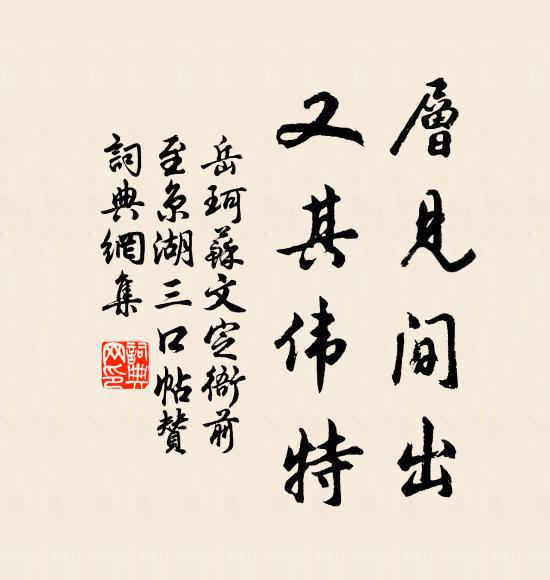 層見間出
又其伟特
岳珂蘇文定衙前
至京湖三口帖贊
詞典網集
詞典網印